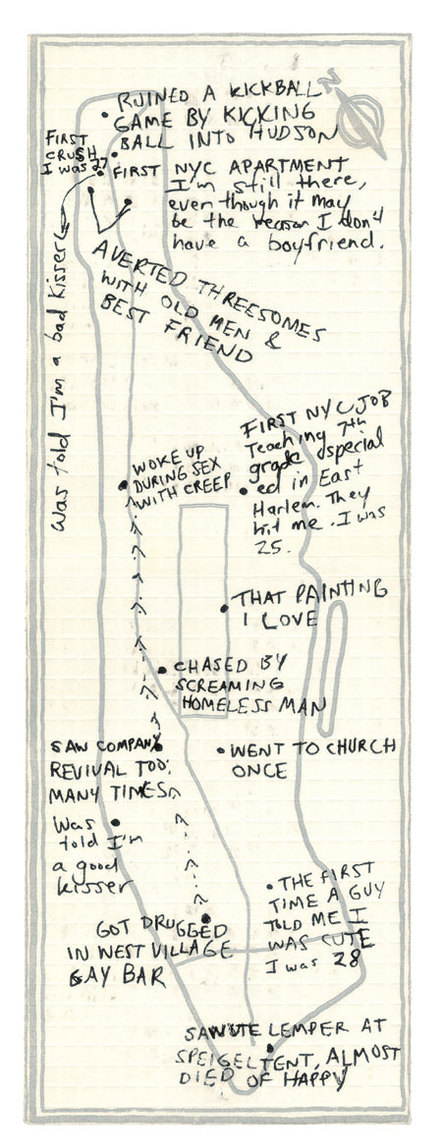 N
RUINED A KICKBALL
GAME BY KICKING
BALL INTO HUDSON
FIRST
CRUSH
I was 27
FIRST NYC APARTMENT
I'm still there,
even though it may
be the reason I don't
have a boyfriend.
was told I'm a bad kisser
AVERTED THREESOMES
WITH OLD MEN &
BEST FRIEND
FIRST NYC JOB
Teaching 7th
grade special
ed in East
Harlem. They
hit me. I was
25.
WOKE UP
DURING SEX
WITH CREEP
THAT PAINTING
I LOVE
CHASED BY
SCREAMING
HOMELESS MAN
SAW COMPANY
REVIVAL TOO
MANY TIMES
WENT TO CHURCH
ONCE
Was
told I'm
a good
kisser
THE FIRST
TIME A GUY
TOLD ME I
WAS CUTE
I was 28
GOT DRUGGED
IN WEST VILLAGE
GAY BAR
SAW UTE LEMPER AT
SPEIGELTENT, ALMOST
DIED OF HAPPY